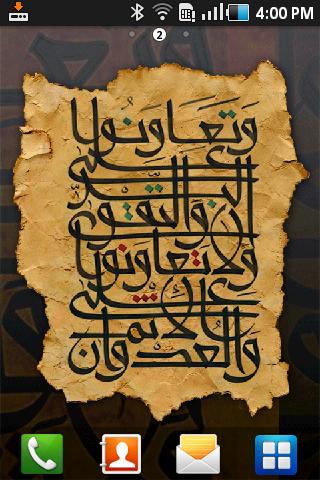 4:00 PM
2
وتعاونوا
على
البر
والتقوى
ولا تعاونوا
على
الإثم
والعدوان